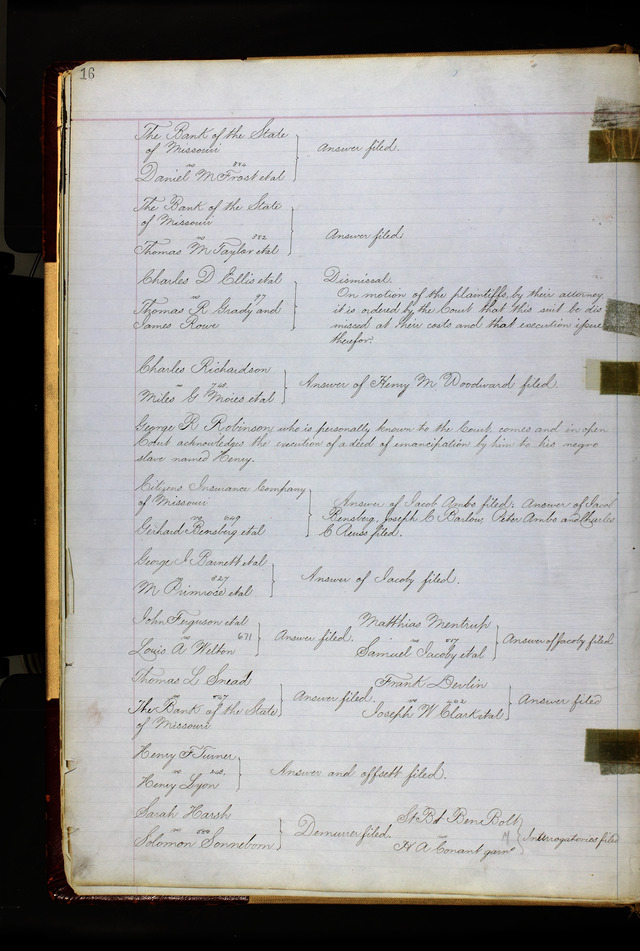 16
The Bank of the State
of Missouri
vs 884
Daniel M Frost et al
Answer filed.
The Bank of the State
of Missouri
vs 882
Thomas M Taylor et al
Answer filed.
Charles D Ellis et al
vs 97
Thomas R Grady and
James Rowe
Dismissal.
On motion of the plaintiffs, by their attorney
it is ordered by the Court that this suit be dis
missed at their costs and that execution issue
therefor.
Charles Richardson
vs 748.
Miles G Moies et al
Answer of Henry M. Woodward filed.
George R Robinson, who is personally known to the Court, comes and in open
Court acknowledges the execution of a deed of emancipation by him to his negro
slave named Henry.
Citizens Insurance Company
of Missouri
vs 649
Gerhard Bensberg et al
Answer of Jacob Ambs filed; Answer of Jacob
Bensberg, Joseph C Barlow, Peter Ambs and Charles
C Reuss filed.
George I Barnett et al
827
M Primrose et al
Answer of Jacoby filed.
John Ferguson et al
vs 671
Louis A Welton
Answer filed.
Matthias Mentrup
vs 817
Samuel Jacoby et al
Answer of Jacoby filed
Thomas L Snead
vs 767
The Bank of the State
of Missouri
Answer filed.
Frank Devlin
vs 702
Joseph W Clark et al
Answer filed
Henry F Turner
vs 248.
Henry Lyon
Answer and offsett filed.
Sarah Harsh
vs 800
Solomon Sonneborn
Demurrer filed.
St Bt Ben Bolt
vs
H A Conant garne
Interrogatories filed